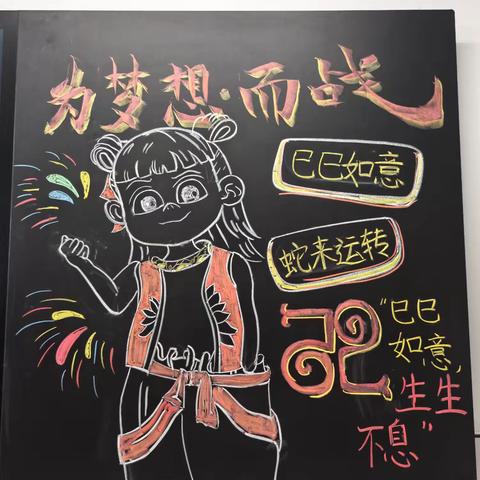 为梦想·而战
巳巳如意
蛇来运转
"巳巳
如意,
生生
不息"